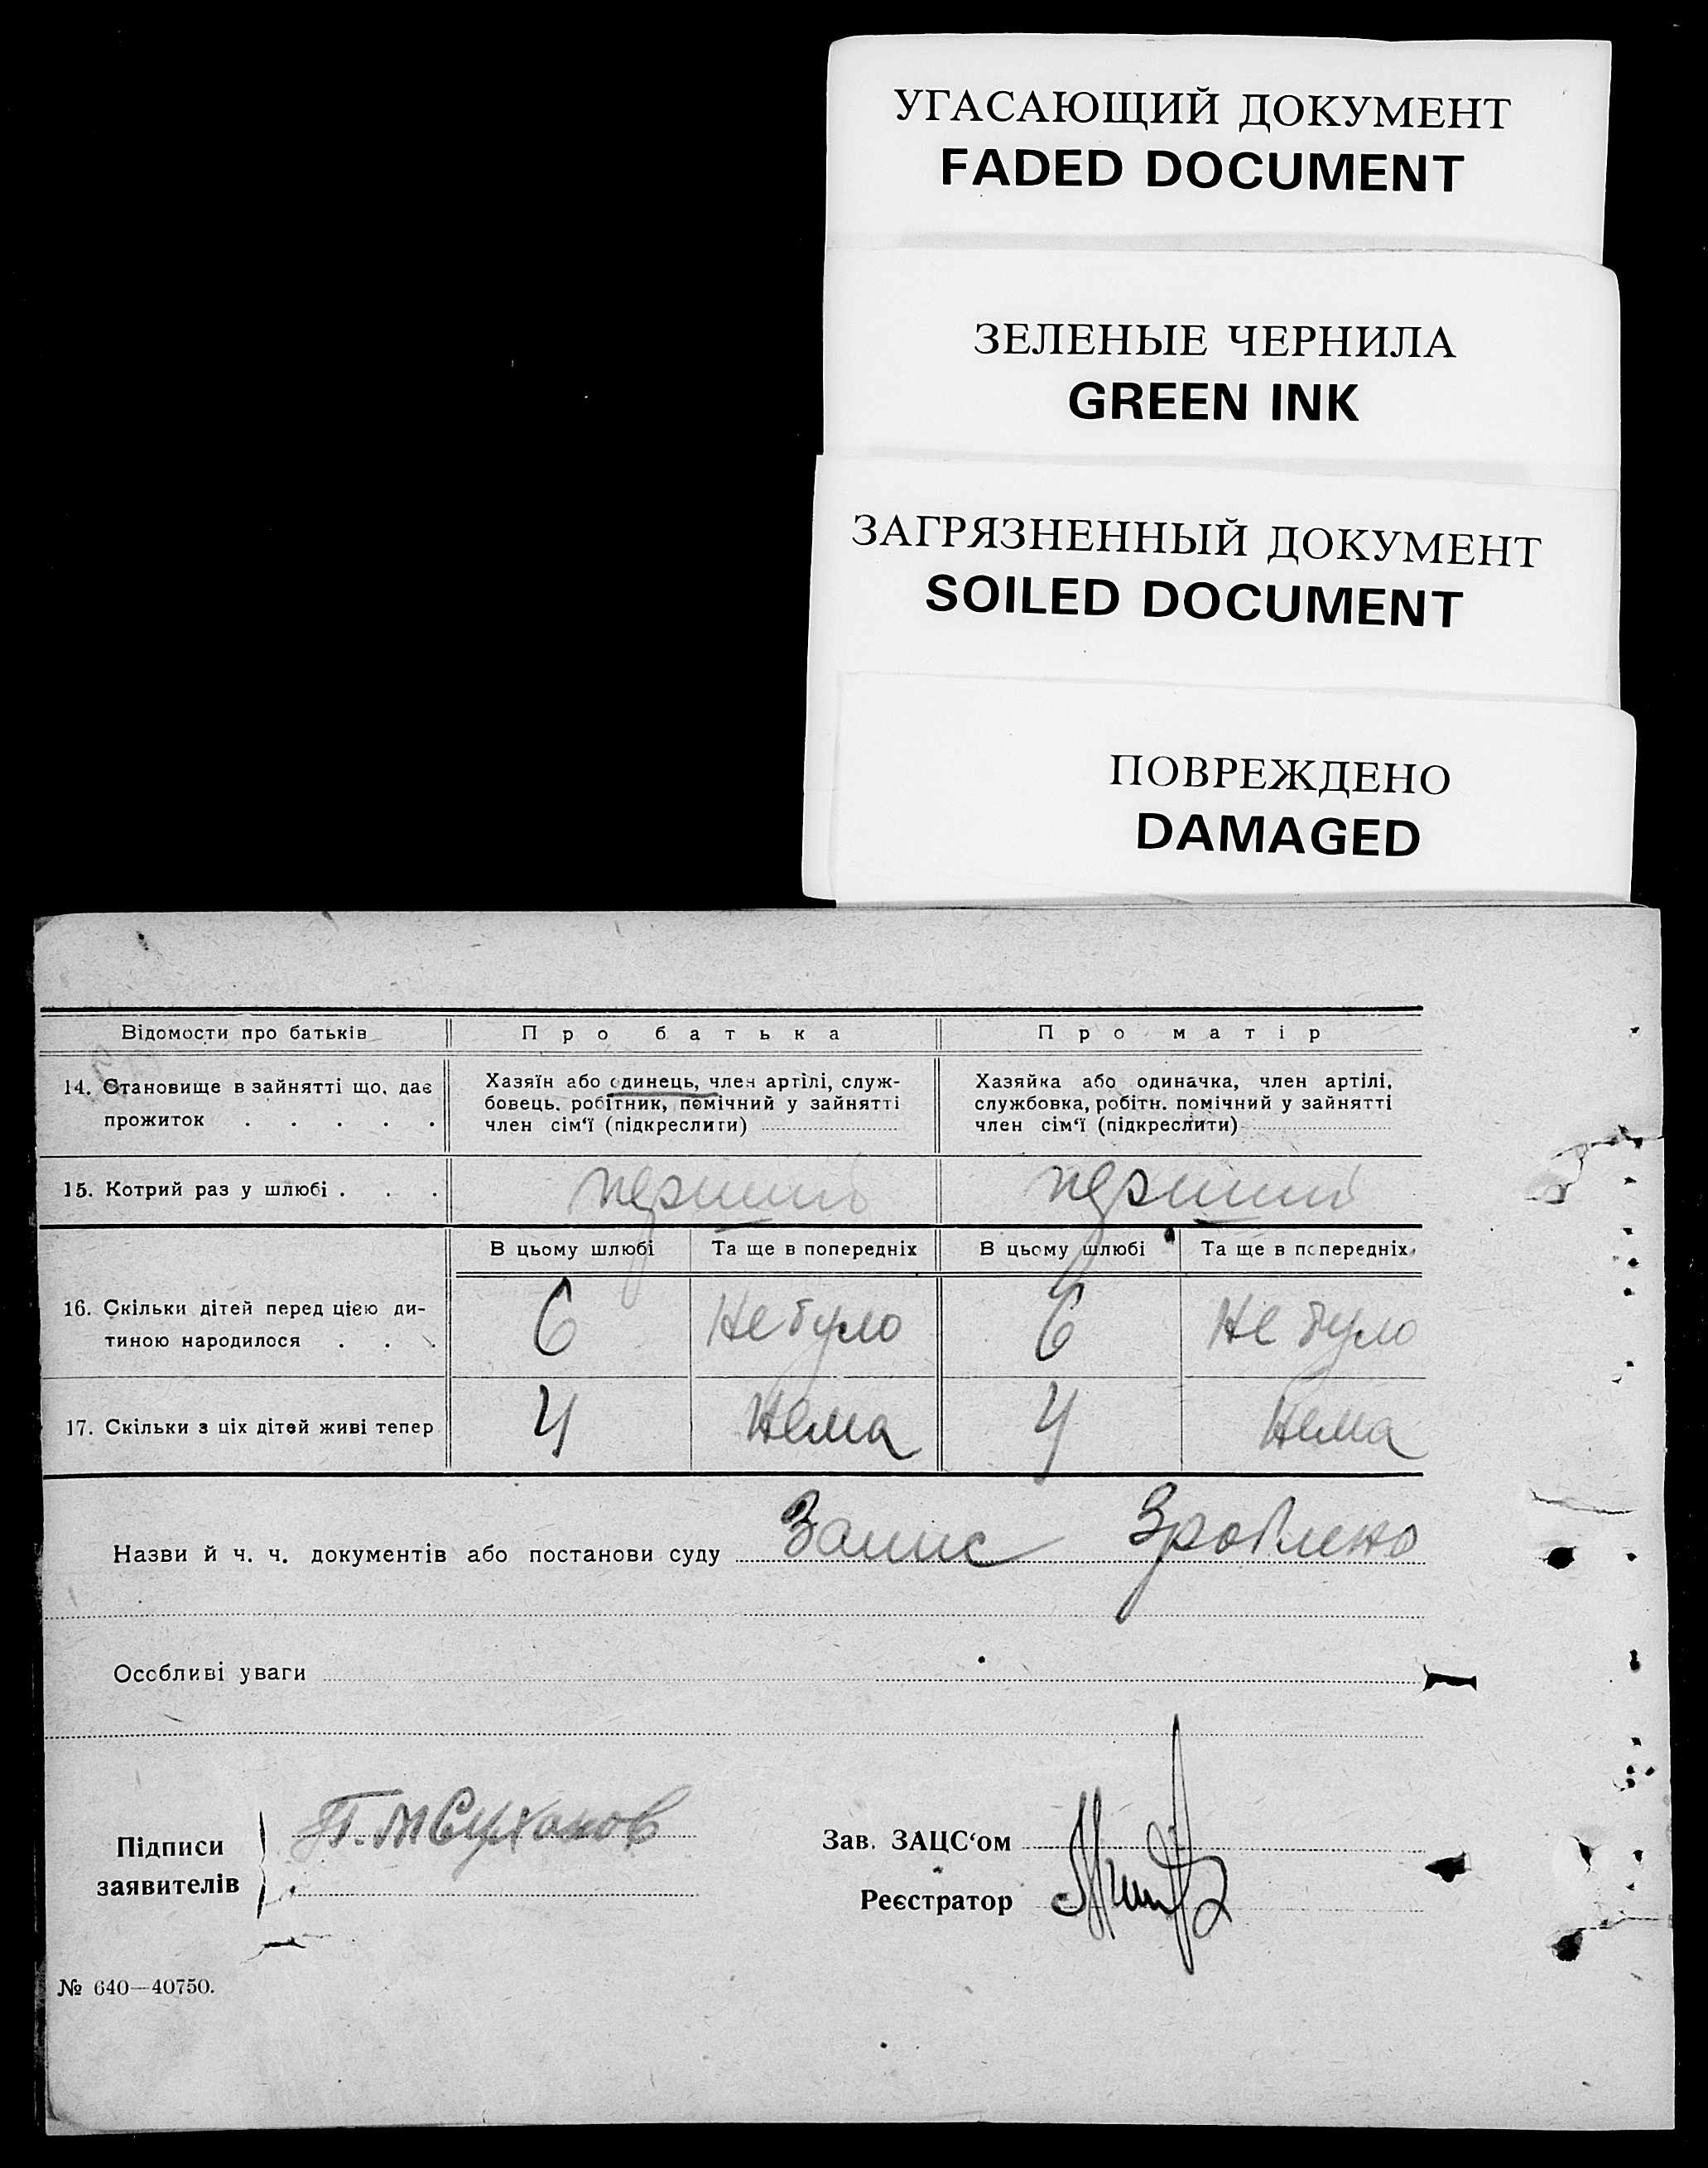 УГАСАЮЩИЙ ДОКУМЕНТ
FADED DOCUMENT
ЗЕЛЕНЫЕ ЧЕРНИЛА
GREEN INK
ЗАГРЯЗНЕННЫЙ ДОКУМЕНТ
SOILED DOCUMENT
ПОВРЕЖДЕНО
DAMAGED
Відомости про батьків
Про батька
Про матір
14. Становище в зайнятті що, дає
прожиток . . . . .
Хазяїн або одинець, член артілі, служ-
бовець, робітник, помічний у зайнятті
член сім‘ї (підкреслити)
Хазяйка або одиначка, член артілі,
службовка, робітн. помічний у зайнятті
член сім‘ї (підкреслити)
15. Котрий раз у шлюбі . . .
перший
перший
В цьому шлюбі
Та ще в попередніх
В цьому шлюбі
Та ще в попередніх
16. Скільки дітей перед цією ди-
тиною народилося . . .
6
Не було
6
Не було
17. Скільки з ціх дітей живі тепер
4
Нема
4
Нема
Назви й ч. ч. документів або постанови суду Запис Зроблено
Особливі уваги
Підписи
заявителів
Зав. ЗАЦС‘ом
Реєстратор
№ 640—40750.